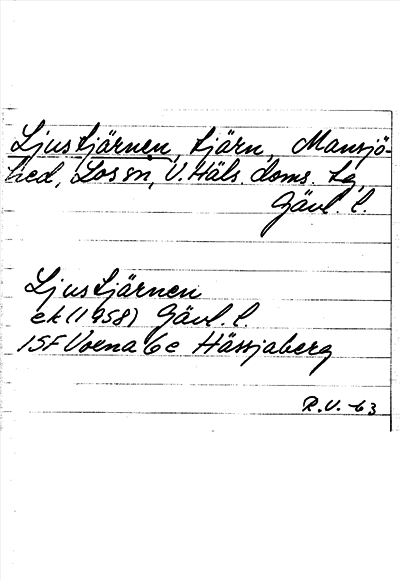 Ljustjärnen, tjärn, Mansjö-
hed, Los sn, V. Häls. doms. tg,
Gävl. l.
Ljustjärnen
ek (1958) Gävl. l.
15F Voxna 6c Hässjaberg
R.V. -63